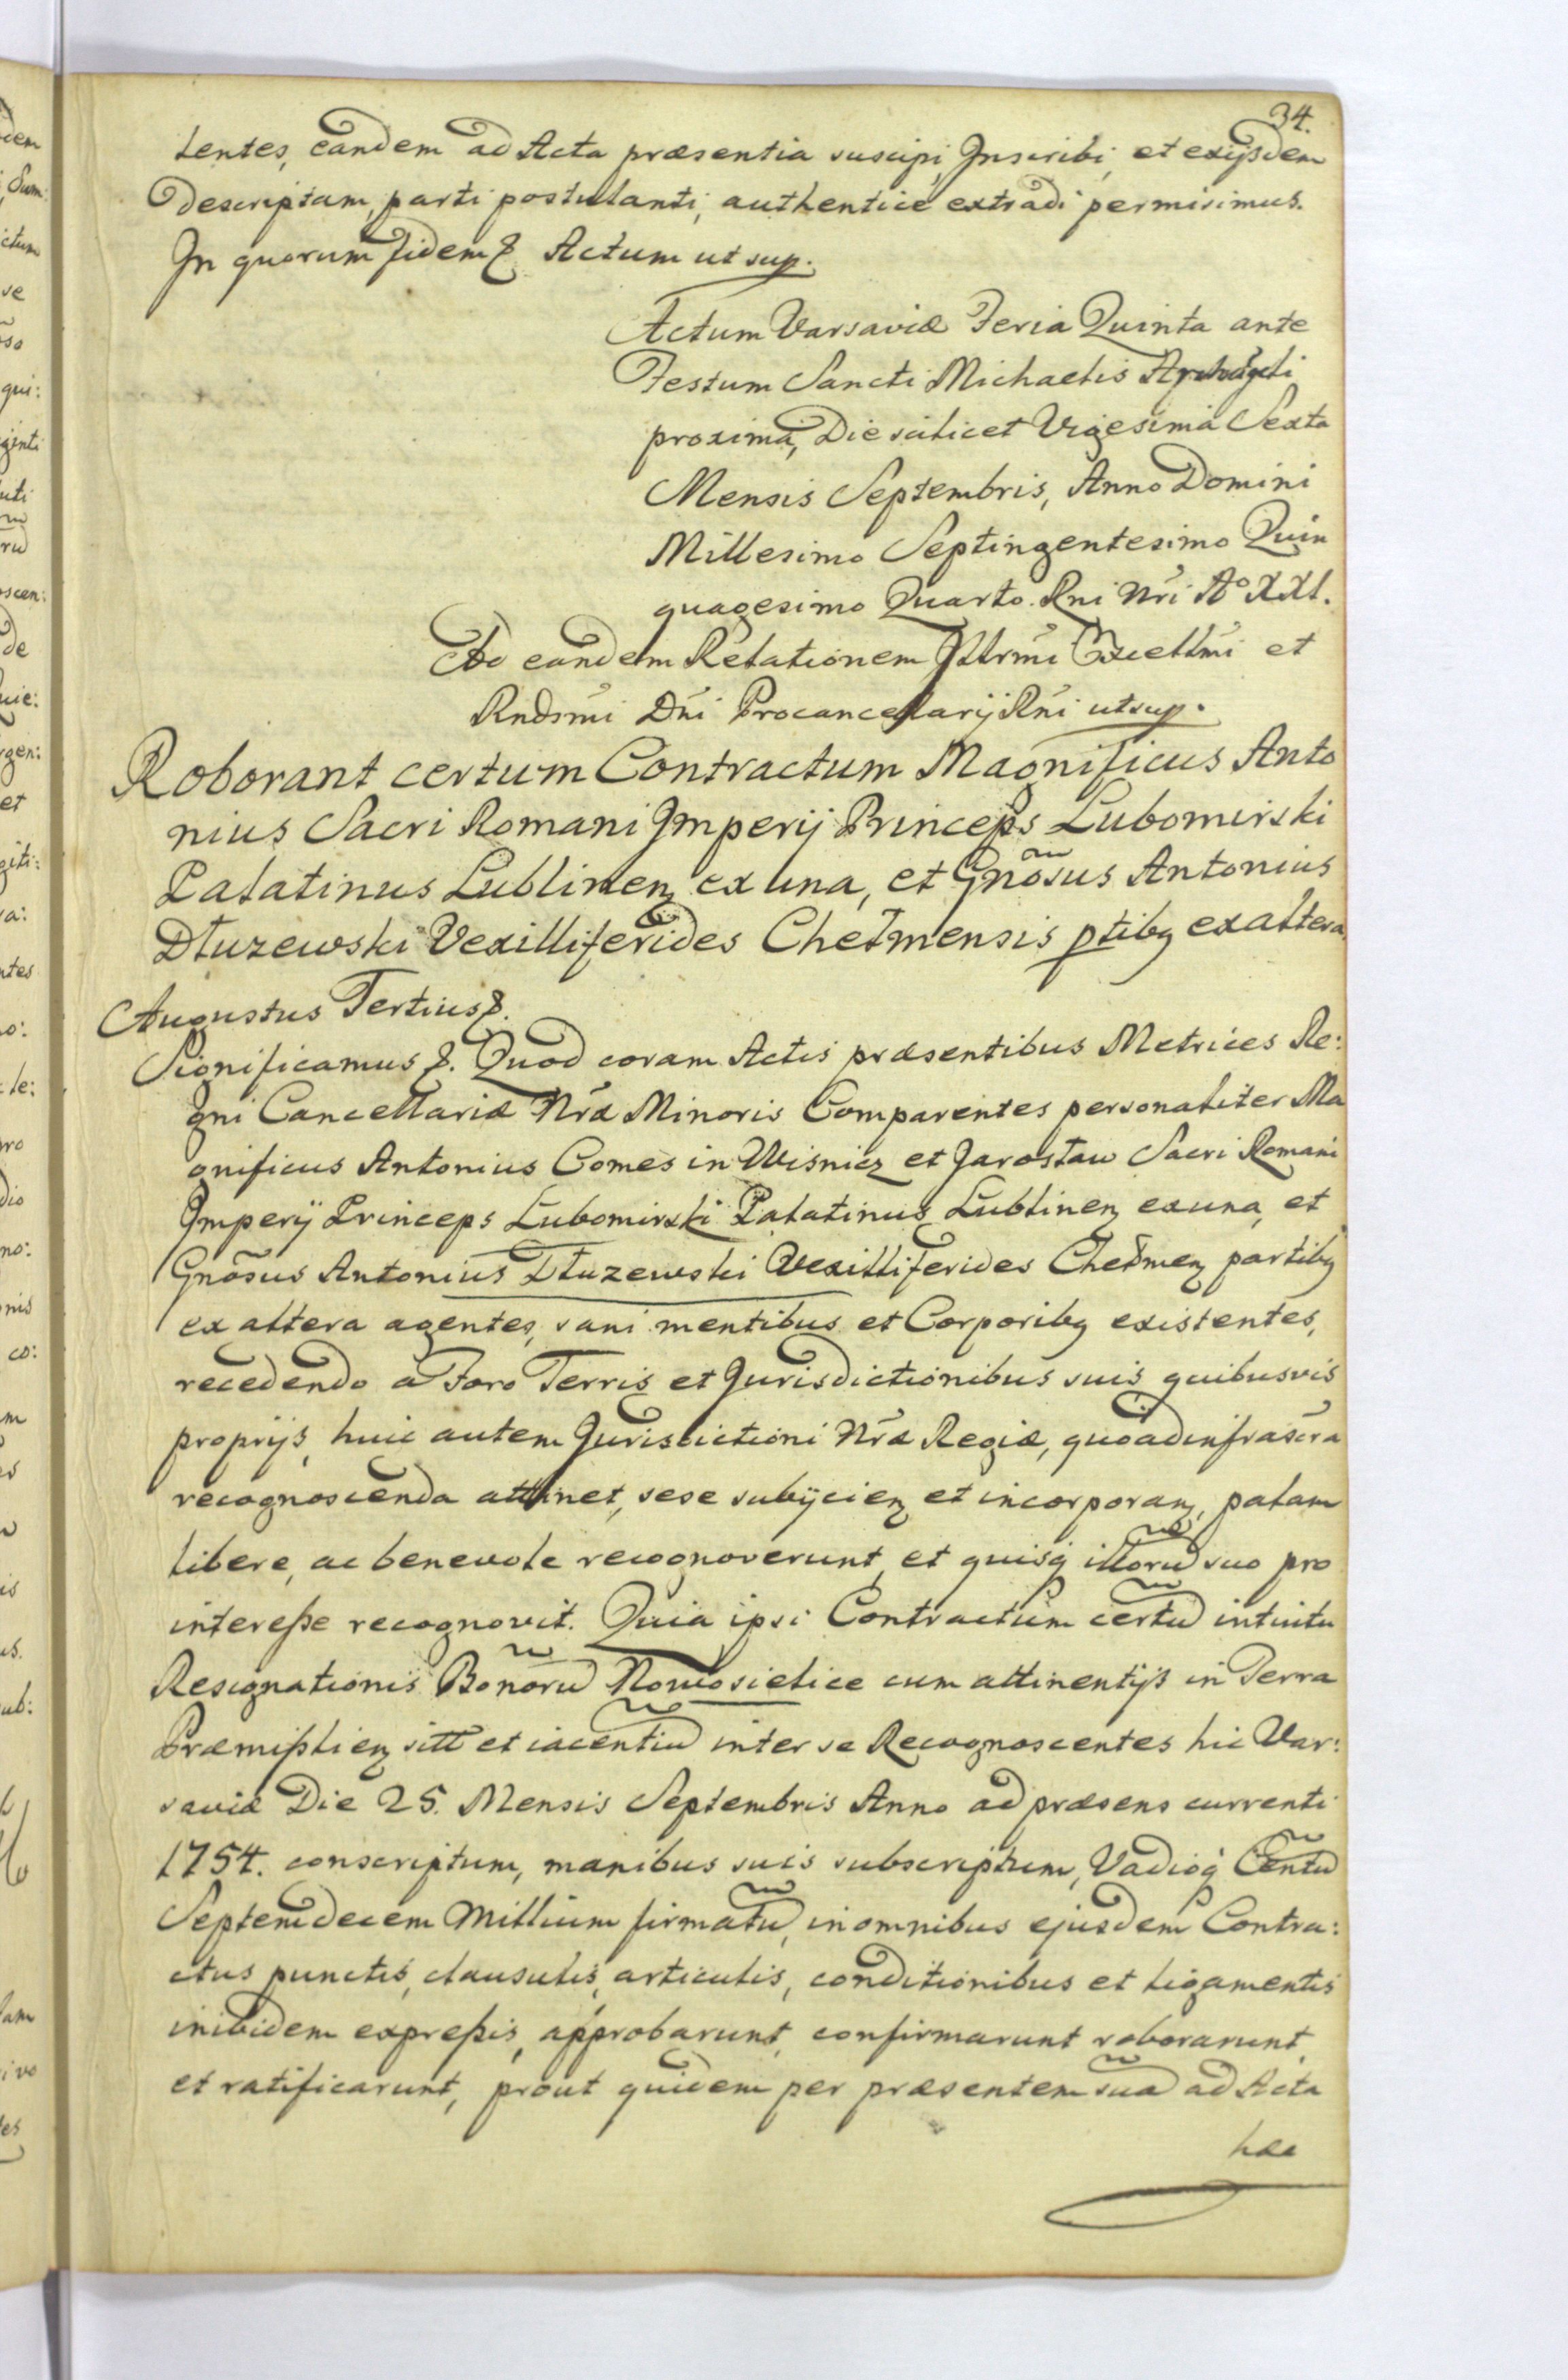 34.
tentes, eandem ad Acta præsentia suscipi, Inscribi, et exijsdem
descriptam, parti postulanti, authentice extradi permisimus.
In quorum fidem &. Actum ut sup.
Actum Varsaviæ Feria Quinta ante
Festum Sancti Michaelis Archangeli
proxima, Die scilicet Vigesima Sexta
Mensis Septembris, Anno Domini
Millesimo Septingentesimo Quin
quagesimo Quarto. Rni Nri A° XXI.
Ad eandem Relationem Illrmi Excellmi et
Rndsmi Dni Procancellarij Rni ut sup.
Roborant certum Contractum Magnificus Anto
nius Sacri Romani Imperij Princeps Lubomirski
Palatinus Lublinen ex una, et Gnosus Antonius
Dłuzewski Vexilliferides Chełmensis ptibq exaltera.
Augustus Tertius &.
Significamus &. Quod coram Actis præsentibus Metrices Re:
gni Cancellariæ Nræ Minoris Comparentes personaliter Ma
gnificus Antonius Comes in Wisnicz et Jarosław Sacri Romani
Imperij Princeps Lubomirski Palatinus Lublinen exuna, et
Gnosus Antonius Dłuzewski Vexilliferides Chełmen partibq
ex altera agentes, sani mentibus et Corporibq existentes,
recedendo a Foro Terris et Jurisdictionibus suis quibusvis
proprijs, huic autem Jurisdictioni Nræ Regiæ, quoad infrascra
recognoscenda attinet, sese subijcien et incorporan, palam
libere, ac benevole recognoverunt, et quisq illorū suo pro
interesse recognovit. Quia ipsi Contractum certū intuitu
Resignationis Bonorū Nowosielice cum attinentijs in Terra
Præmislien sitt et iacentiū inter se Recognoscentes hic Var:
saviæ Die 25. Mensis Septembris Anno ad præsens currenti
1754. conscriptum, manibus suis subscriptum, Vadioq Centū
Septemdecem Millium firmatū, in omnibus ejusdem Contra:
ctus punctis, clausulis, articulis, conditionibus et ligamentis
inibidem expressis, approbarunt, confirmarunt roborarunt
et ratificarunt, prout quidem per præsentem suā ad Acta
hæc